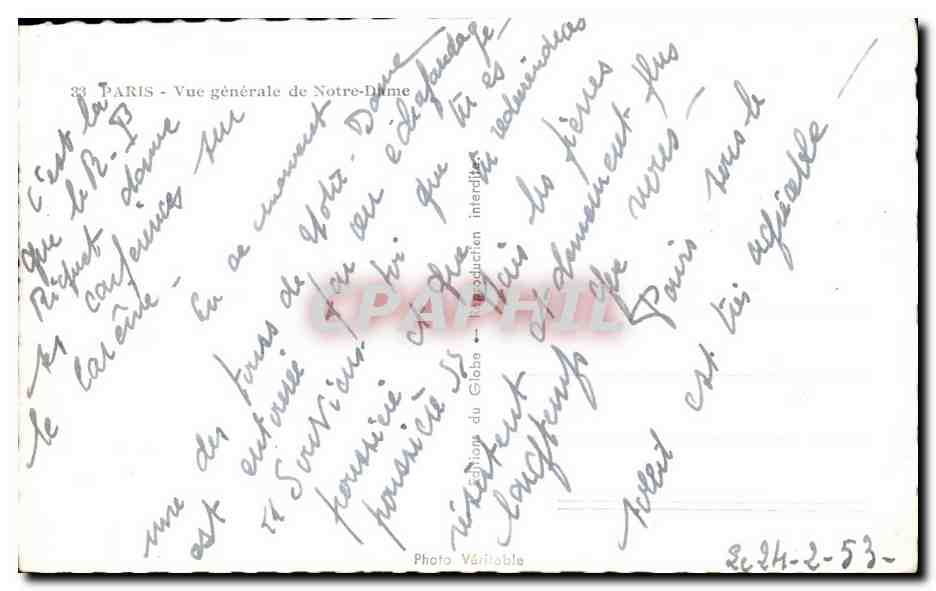 33 PARIS - Vue générale de Notre-Dame
C'est là
que le R. P
Riquet donne
ses conférences sur
le Carême -
En ce moment
une des tours de Notre-Dame
est entourée par un échafaudage -
"Souviens-toi que tu es
poussière et que tu redeviendras
poussière" mais les pierres
résistent évidemment plus
longtemps que nous -
Paris sous le
soleil est très agréable -
Le 24-2-53-
Editions du Globe - Reproduction interdite.
Photo Véritable
CPAPHIL